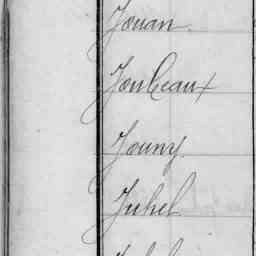 Jouan
Joubeaux
Jouny
Juhel